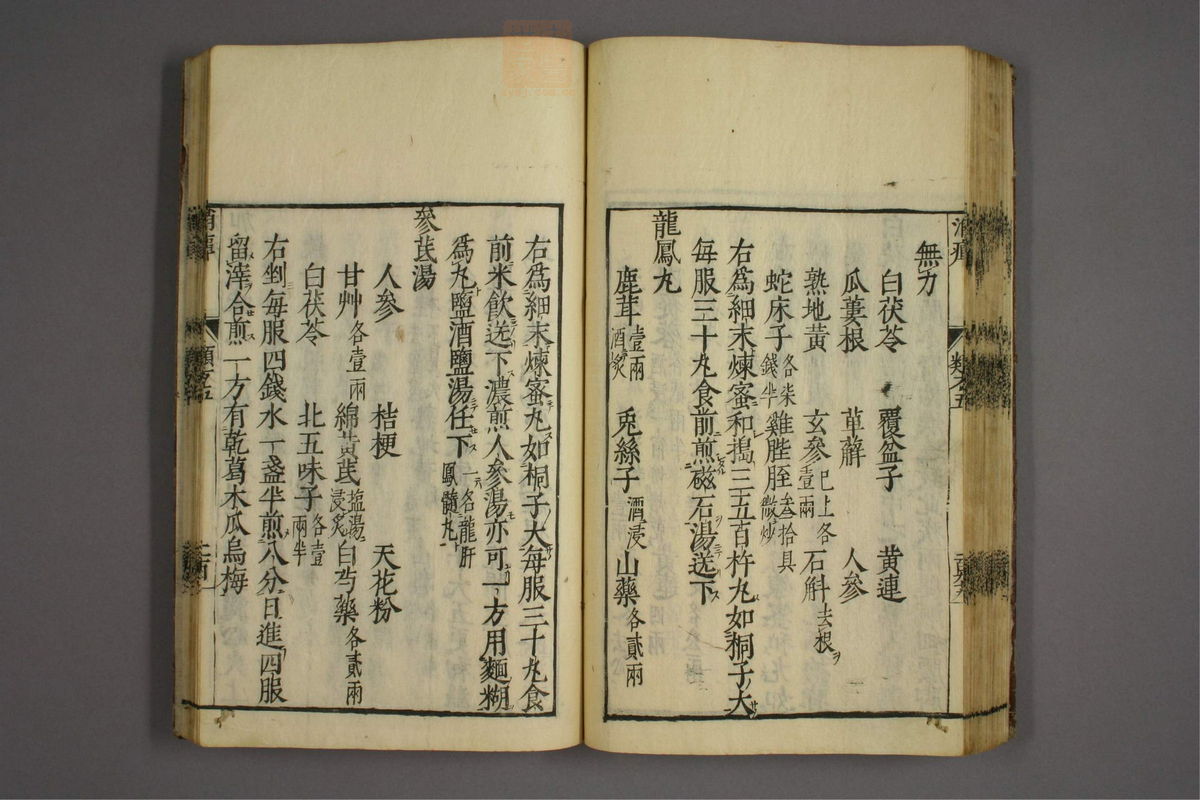 無力
白茯苓 覆盆子 黄連
瓜蔞根 萆薢 人參
熟地黄 玄參已上各壹兩 石斛去根
蛇床子各柒錢半 雞䏶胵叁拾具微炒
右爲細末煉蜜和搗三五百杵丸如桐子大
每服三十丸食前煎磁石湯送下
龍鳳丸
鹿茸壹兩酒炙 兎絲子酒浸 山藥各貳兩
右爲細末煉蜜丸如桐子大每服三十丸食
前米飲送下濃煎人參湯亦可一方用麵糊
爲丸鹽酒鹽湯任下一名龍肝鳳髓丸
參芪湯
人參 桔梗 天花粉
甘艸各壹兩 綿黄芪塩湯浸炙 白芍藥各貳兩
白茯苓 北五味子各壹兩半
右剉每服四錢水一盞半煎八分日進四服
留滓合煎一方有乾葛木瓜烏梅